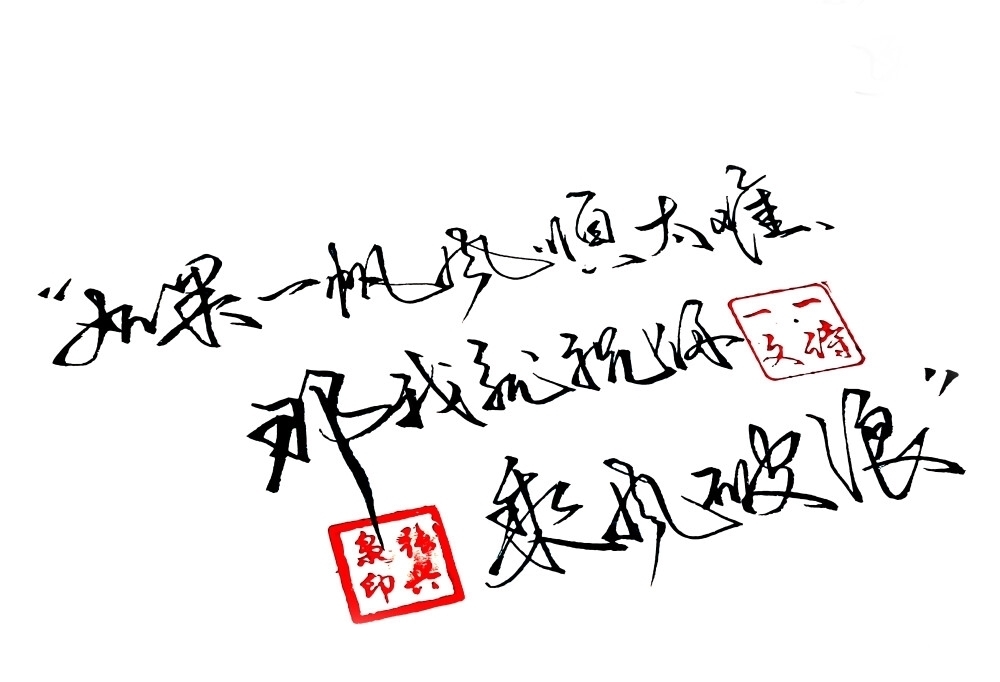 “如果一帆风顺太难、
那我就祝你
一诗一文
乘风破浪”